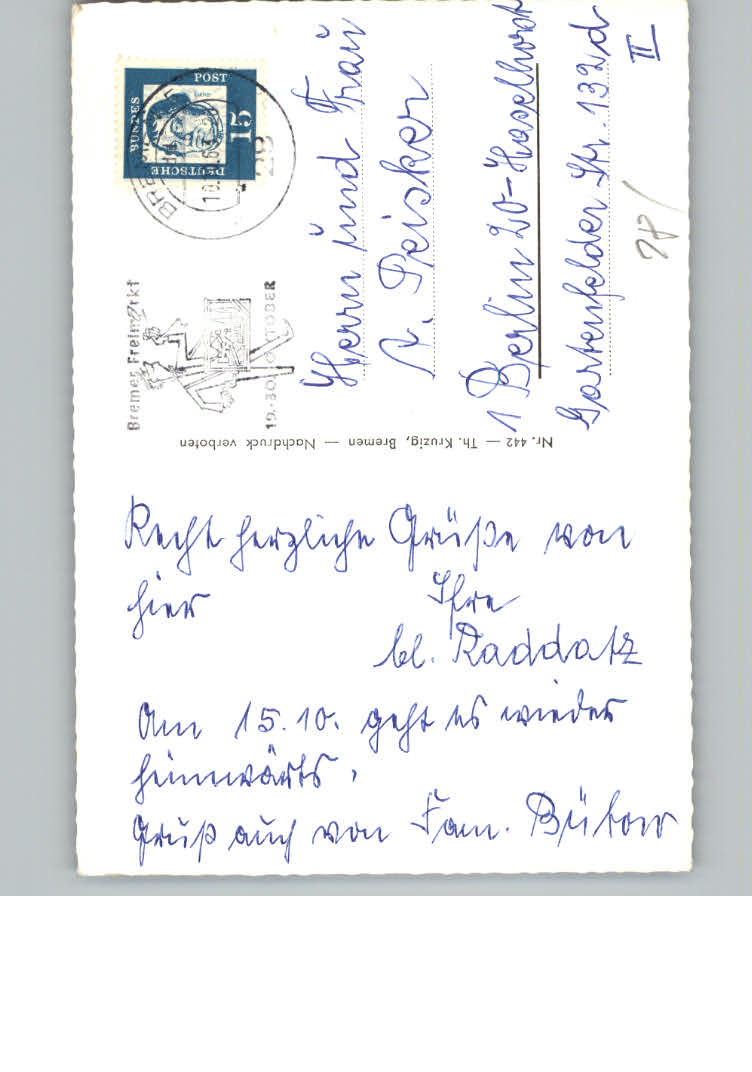 DEUTSCHE
BUNDES
POST
15
Bremer Freimarkt
19.-30. OKTOBER
Herrn und Frau
A. Peisker
1 Berlin 20-Haselhorst
Gartenfelder Str. 132d
II
Nr. 442 — Th. Kruzig, Bremen — Nachdruck verboten
Recht herzliche Grüße von
hier Ihre
Raddatz
Am 15.10. geht es wieder
heimwärts,
Gruß auch von Fam. Bütow